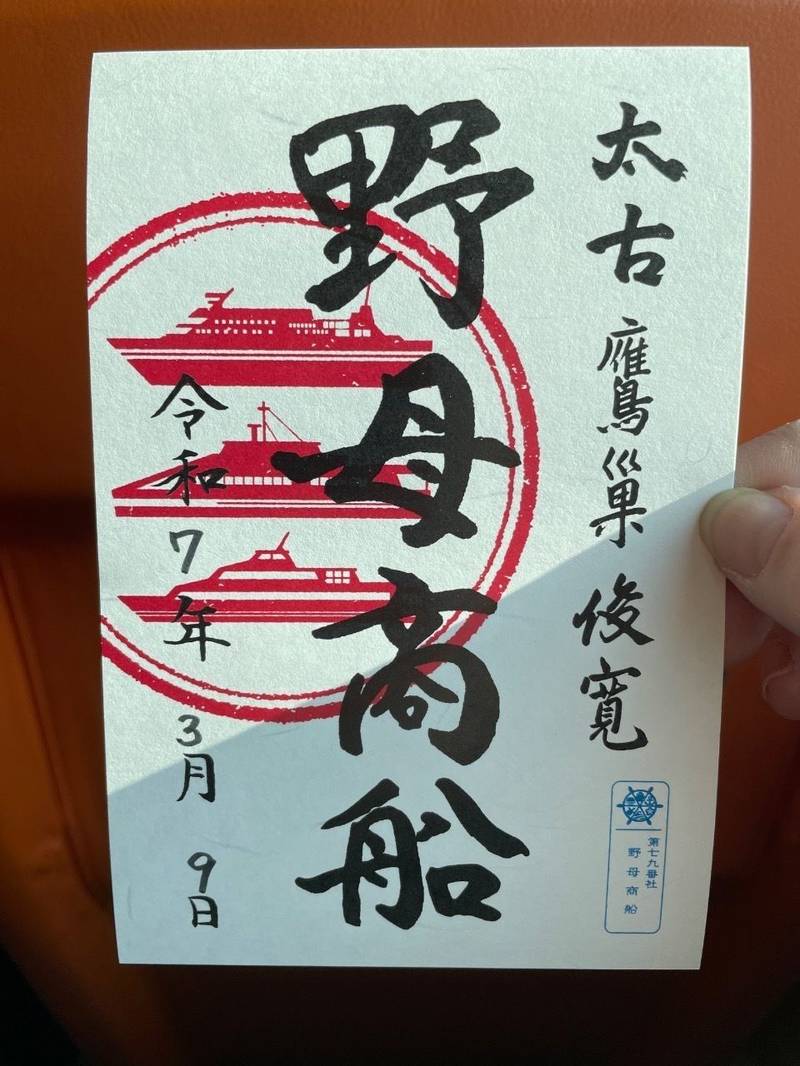 太古 鷹巣 俊寛
野母商船
令和7年 3月 9日
第七九番社
野母商船